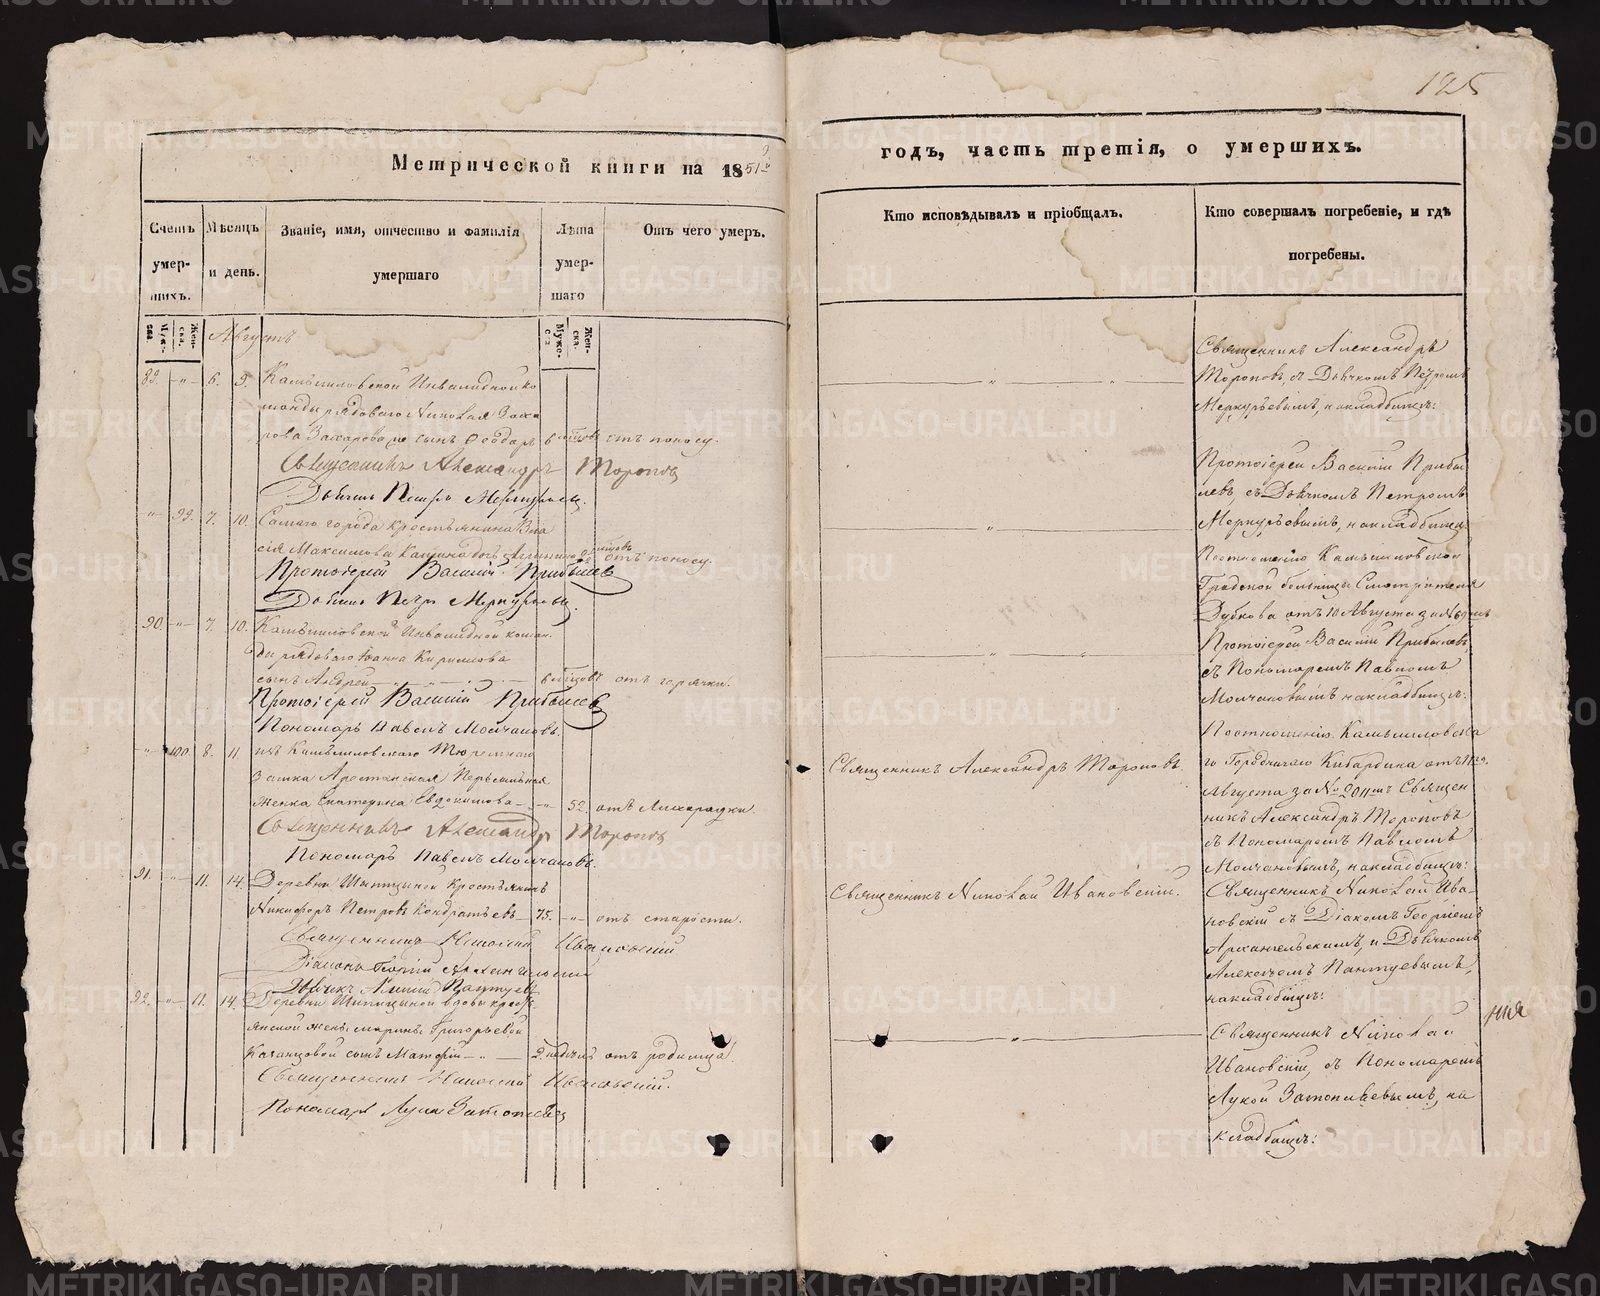 125
Метрической книги на 1851 годъ, часть третія, о умершихъ.
Счетъ умер-шихъ.
Мѣсяцъ и день.
Званіе, имя, отчество и фамилія умершаго
Лѣта умер-шаго
Отъ чего умеръ.
Кто исповѣдывалъ и пріобщалъ.
Кто совершалъ погребеніе, и гдѣ погребены.
Муже-ска
Жен-ска.
Муже-ска
Жен-ска.
Августъ
89. „ 6. 9. Камышловской Инвалидной ко
манды рядоваго Николая Заха
рова Захарова сынъ Ѳеодоръ 6 мѣсяц. отъ поносу.
Священникъ Александръ Торопов
Дьячекъ Петръ Меркурьевъ.
„ 99. 7. 10. Самаго города крестьянина Вла
сія Максимова Кашина дочь отъ поносу.
Протоіерей Василий Прибылев
Дьячекъ Петръ Меркурьевъ.
90. „ 7. 10. Камышловской Инвалидной коман.
ды рядоваго Іоанна Кирилова
сынъ Андрей 6 мѣсяц. отъ горячки.
Протоіерей Василій Прибылев
Пономарь Павелъ Молчановъ.
„ 100. 8. 11 изъ Камышловскаго Тюремнаго
Замка Арестанская
Женка Екатерина Евдокимова „ 52. отъ Лихорадки.
Священникъ Александръ Торопов
Пономарь Павелъ Молчановъ.
91. „ 11. 14. Деревни Шипицыной Крестьянинъ
Никифоръ Петровъ Кондратьевъ 75. „ отъ старости.
Священникъ Николай Ивановскій
Діаконъ Георгій Архангельскій
Дьячекъ Алексій Пантуев
92. „ 11. 14. Деревни Шипицыной вдовы кресть
янской жены Марины Григорьевой
Казанцовой сынъ Матфей 2 недѣль отъ родимца.
Священникъ Николай Ивановскій.
Пономарь Лука Затопляев
Священникъ Александръ
Тороповъ, съ Дьячкомъ Петромъ
Меркурьевымъ, на кладбищѣ.
Протоіерей Василій Прибы
левъ, съ Дьячкомъ Петромъ
Меркурьевымъ, на кладбищѣ
По отношенію Камышловской
Градской больницы Смотрителя
Зубкова отъ 10 Августа за №
Протоіерей Василій Прибылевъ,
съ Пономаремъ Павломъ
Молчановымъ на кладбищѣ.
Священникъ Александръ Тороповъ.
По отношенію Камышловска
го Городничаго Кибардина отъ 11го
Августа за № 2011мъ Священ
никъ Александръ Тороповъ
съ Пономаремъ Павломъ
Молчановымъ, на кладбищѣ.
Священникъ Николай Ивановскій.
Священникъ Николай Ива-
новскій съ Діакомъ Георгіемъ
Архангельскимъ, и Дьячкомъ
Алексѣемъ Пантуевымъ,
на кладбищѣ.
Священникъ Николай
Ивановскій, съ Пономаремъ
Лукой Затопляевымъ, на
кладбищѣ.
METRIKI.GASO-URAL.RU